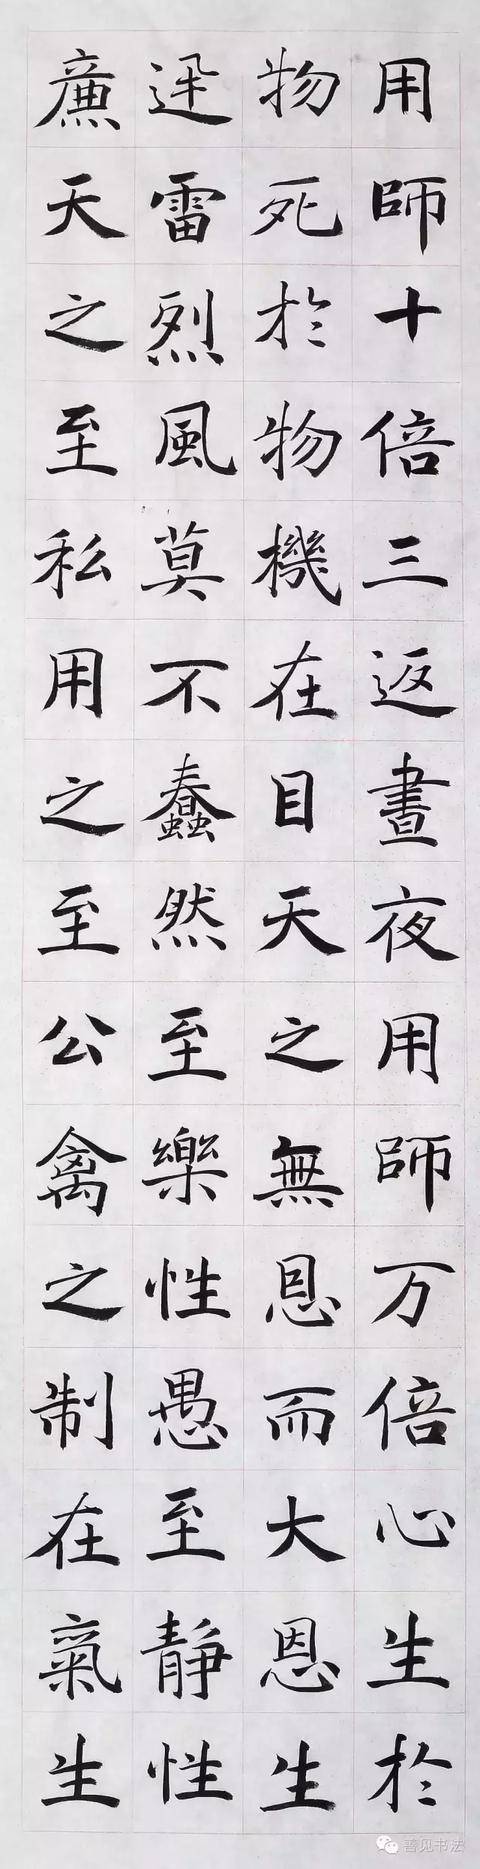 用師十倍三返晝夜用師万倍心生於
物死於物機在目天之無恩而大恩生
迅雷烈風莫不蠢然至樂性愚至靜性
廉天之至私用之至公禽之制在氣生
善见书法